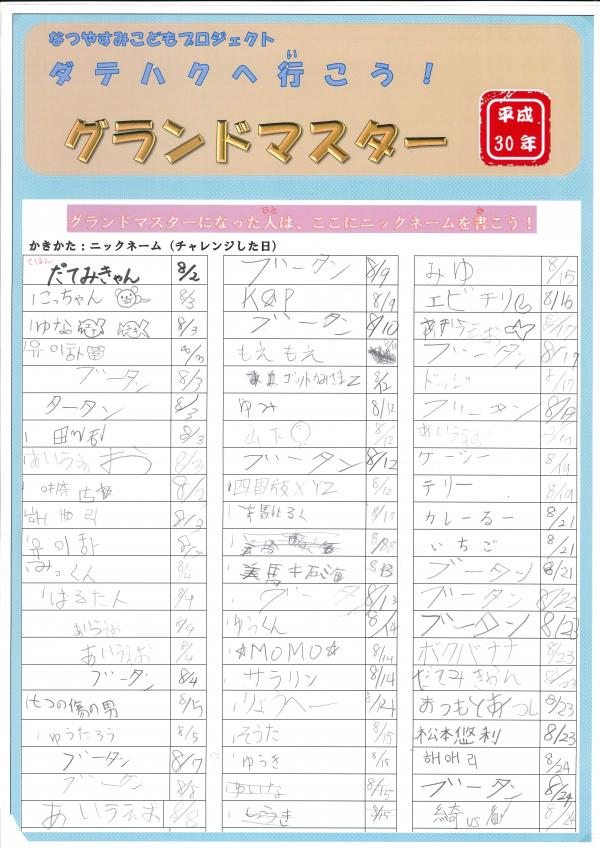 なつやすみこどもプロジェクト
ダテハクへ行こう！
い
グランドマスター
平成
30年
グランドマスターになった人は、ここにニックネームを書こう！
ひと
か
かきかた：ニックネーム（チャレンジした日）
てほん
だてみきゃん 8/2
にっちゃん 8/3
ゆな 8/3
유이하
ブータン 8/3
タータン 8/3
8/3
あいうえおう 8/3
해바리 8/3
유이하
みっくん 8/4
はるた人 8/4
あいうえお 8/4
あいうえお 8/4
ブータン 8/4
七つの傷の男 8/5
ゆうたろう 8/5
ブータン 8/7
ブータン 8/8
あいうえお 8/8
ブータン 8/9
K@P 8/9
ブータン 8/10
もえもえ
ゆみ 8/12
山下 8/12
ブータン 8/12
四国版XYZ 8/12
8/13
8/13
ブータン 8/13
ゆうくん 8/14
☆MOMO☆ 8/14
サラリン 8/14
りょうへー 8/14
そうた 8/15
ゆうき 8/15
あいな 8/15
8/15
みゆ 8/15
エビチリ 8/16
あいうえお☆ 8/17
ブータン 8/17
ドッジ 8/17
ブータン 8/19
あいうえお
ケーシー 8/19
テリー 8/19
カレーるー 8/21
いちご 8/21
ブータン 8/21
ブータン 8/22
ブータン 8/23
ボクバナナ 8/23
だてみきゃん 8/23
8/23
松本悠利 8/23
해애리 8/24
ブータン 8/24
8/24